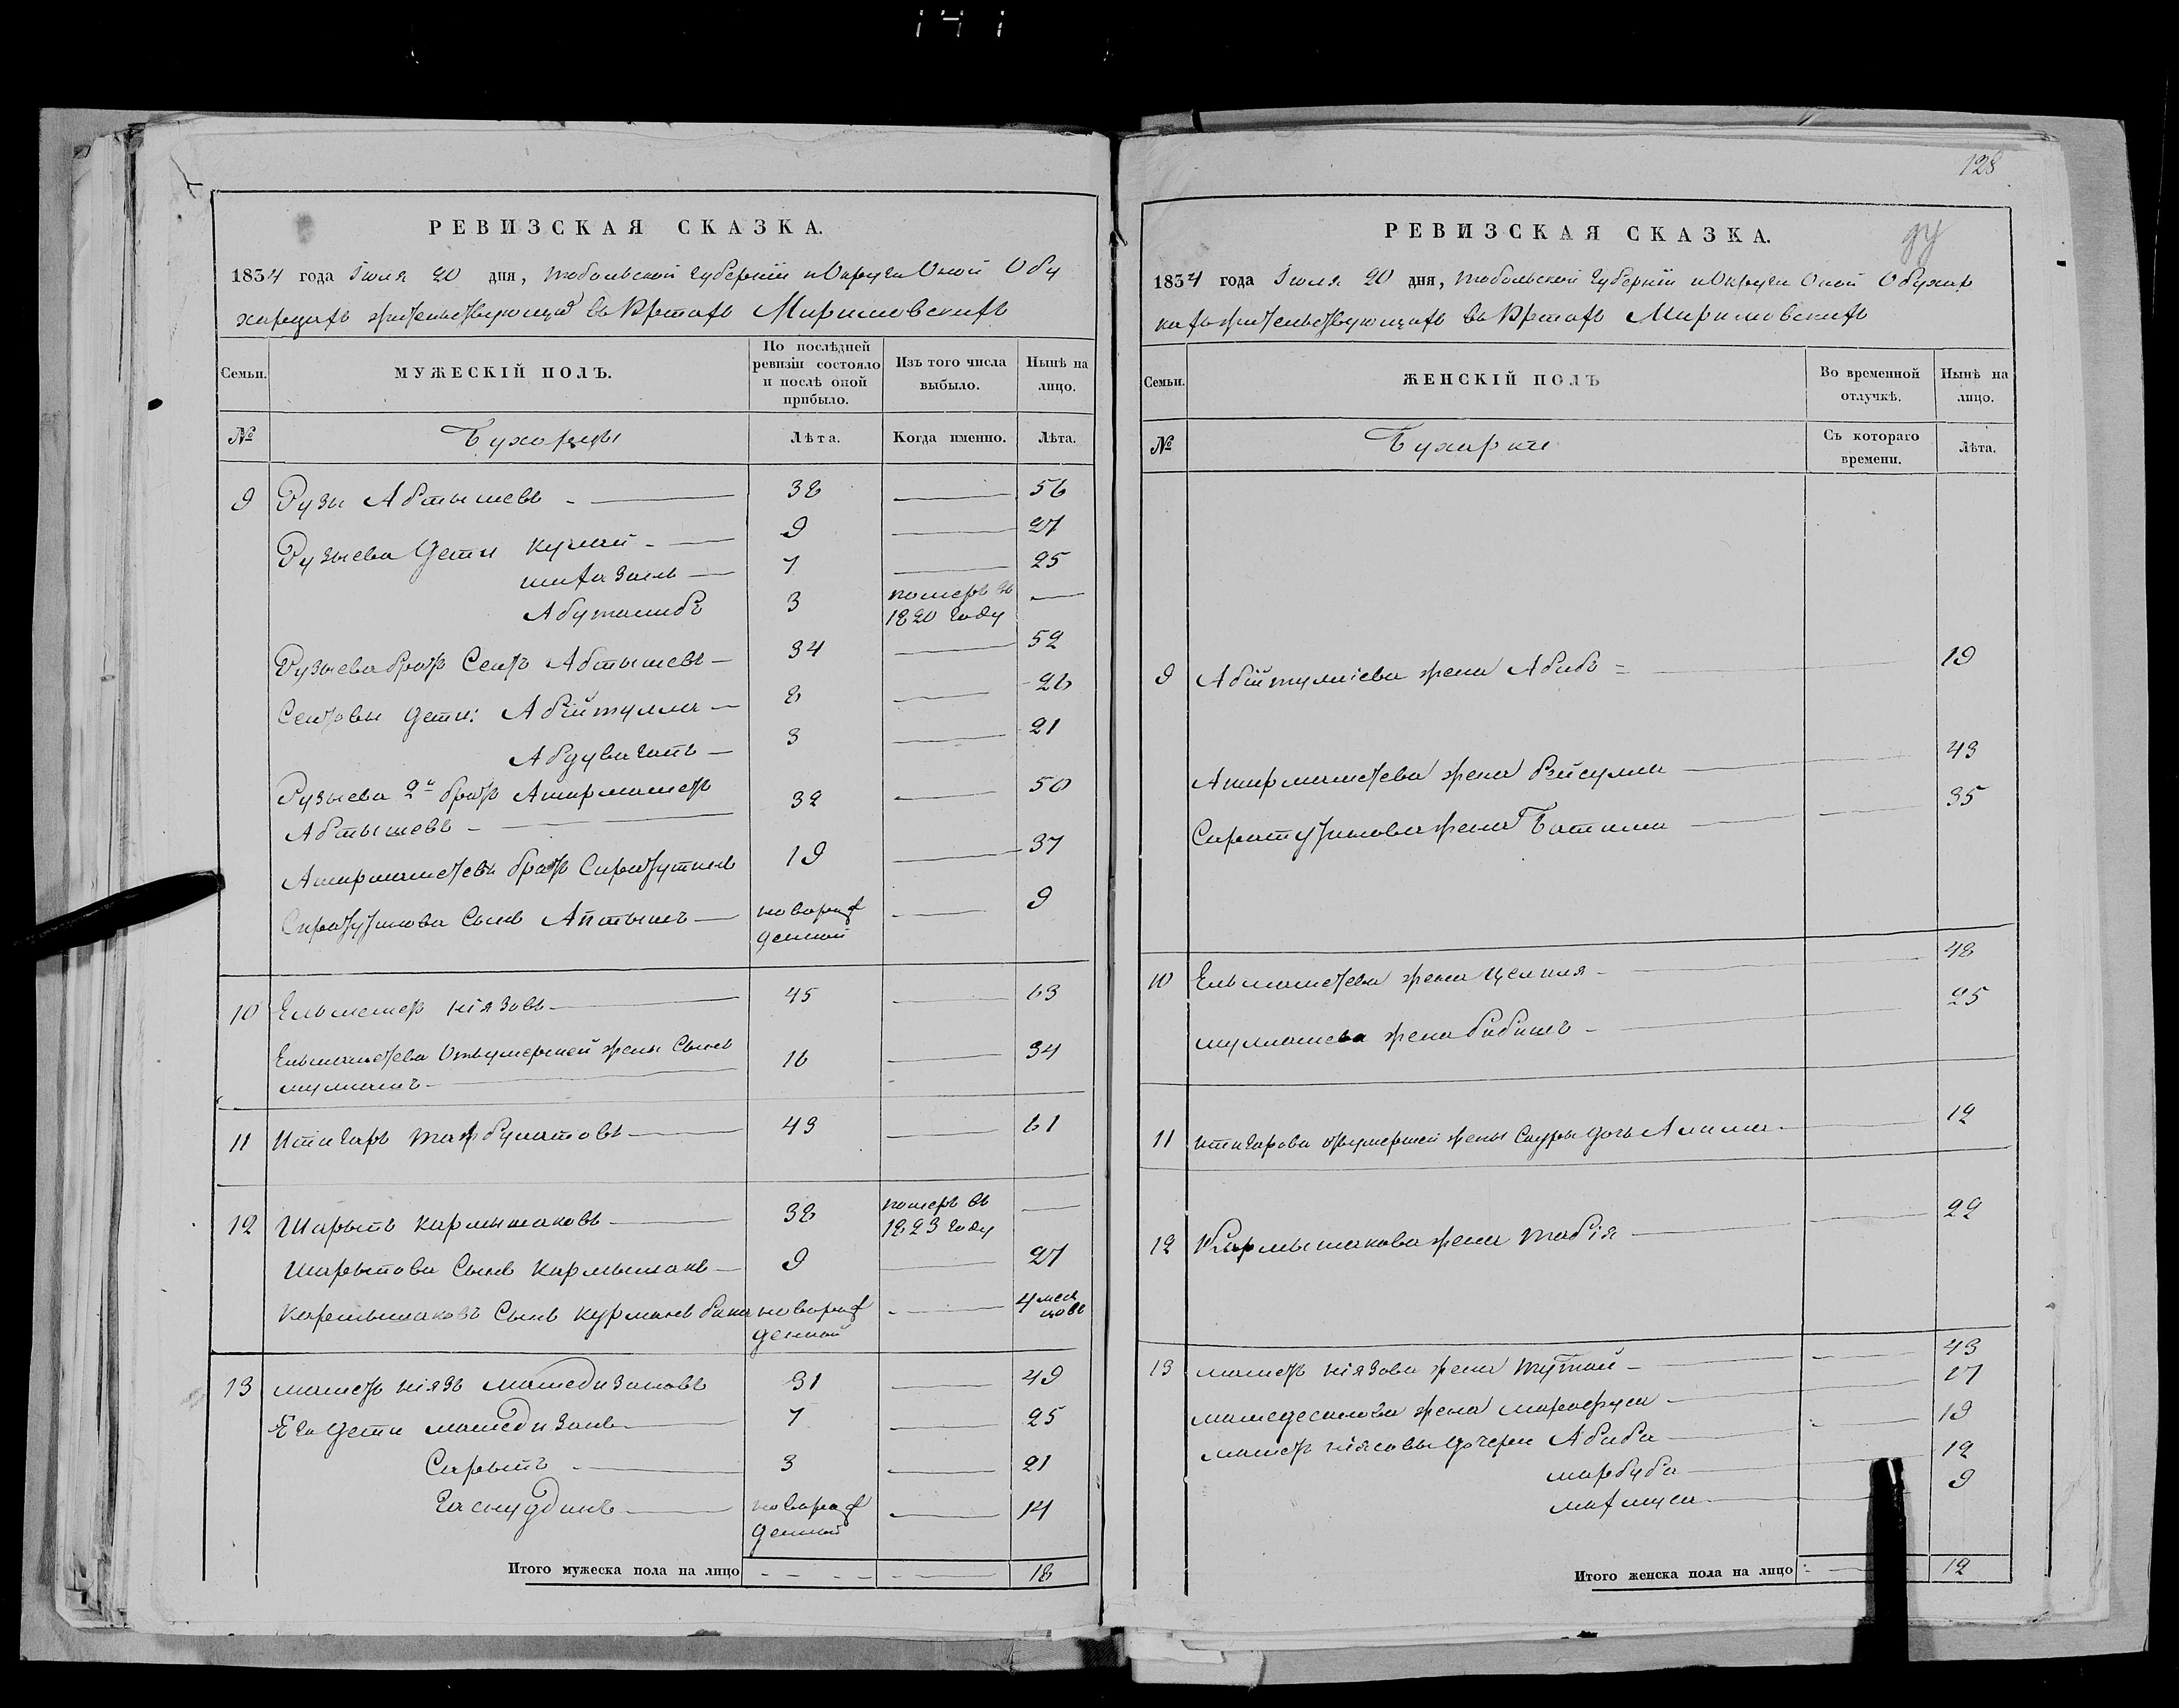 141
РЕВИЗСКАЯ СКАЗКА.
1834 года Іюля 20 дня, тобольской губерніи и Округи Оной О бу
харцахъ жительствующихъ въ Юртахъ Миримовскихъ
Семьи.
МУЖЕСКІЙ ПОЛЪ.
По послѣдней ревизіи состояло и послѣ оной прибыло.
Изъ того числа выбыло.
Нынѣ на лицо.
№
Бухарцы
Лѣта.
Когда именно.
Лѣта.
9 Рузы Абтышевъ 38 — 56
Рузыева дети Кучай 9 — 27
шихазаль 7 — 25
Абуталибъ 3 померъ въ 1820 году —
Рузыева братъ Сеитъ Абтышевъ 34 — 52
Сеитовы дети: Абійтулла 8 — 26
Абдувагапъ 3 — 21
Рузыева 2й братъ Аширмаметъ
Абтышевъ 32 — 50
Аширмаметевъ братъ Сиразутинъ 19 — 37
Сиразутинова Сынъ Аптышъ новорож
денной — 9
10 Ельмеметъ ніязовъ 45 — 63
Ельмаметева Отъ умершей жены Сынъ
муллашъ 16 — 34
11 Итигаръ тажбулатовъ 43 — 61
12 Шарыпъ кармышаковъ 38 померъ въ 1823 году —
Шарыпова Сынъ Кармышакъ 9 — 27
Кармышаковъ Сынъ курманъ баки новорож
денной — 4 меся
цовъ
13 маметъ ніязъ мамедизановъ 31 — 49
Его дети мамедизанъ 7 — 25
Сарыпъ 3 — 21
Гаснудинъ новорож
денной — 14
Итого мужеска пола на лицо — — 18
128
РЕВИЗСКАЯ СКАЗКА.
1834 года Іюля 20 дня, тобольской губерніи и Округи Оной О бухар
кахъ жительствующихъ въ Юртахъ Миримовскихъ
Семьи.
ЖЕНСКІЙ ПОЛЪ
Во временной отлучкѣ.
Нынѣ на лицо.
№
Бухарки
Съ котораго времени.
Лѣта.
9 Абійтуллаева жена Абибъ — 19
Аширмаметева жена Рейсулма — 43
Сиратутинова жена Батима — 35
10 Ельмаметева жена Целиля — 48
муллашева жена бибишъ — 25
11 итигарова отъ умершей жены Сауры дочь Алима — 12
12 Кармышакова жена Табія — 22
13 маметъ ніязова жена тутай — 43
мамедесанова жена марафуза — 17
маметъ ніясовы дочери Абиба — 19
марбуба — 12
махмуса — 9
Итого женска пола на лицо — 12